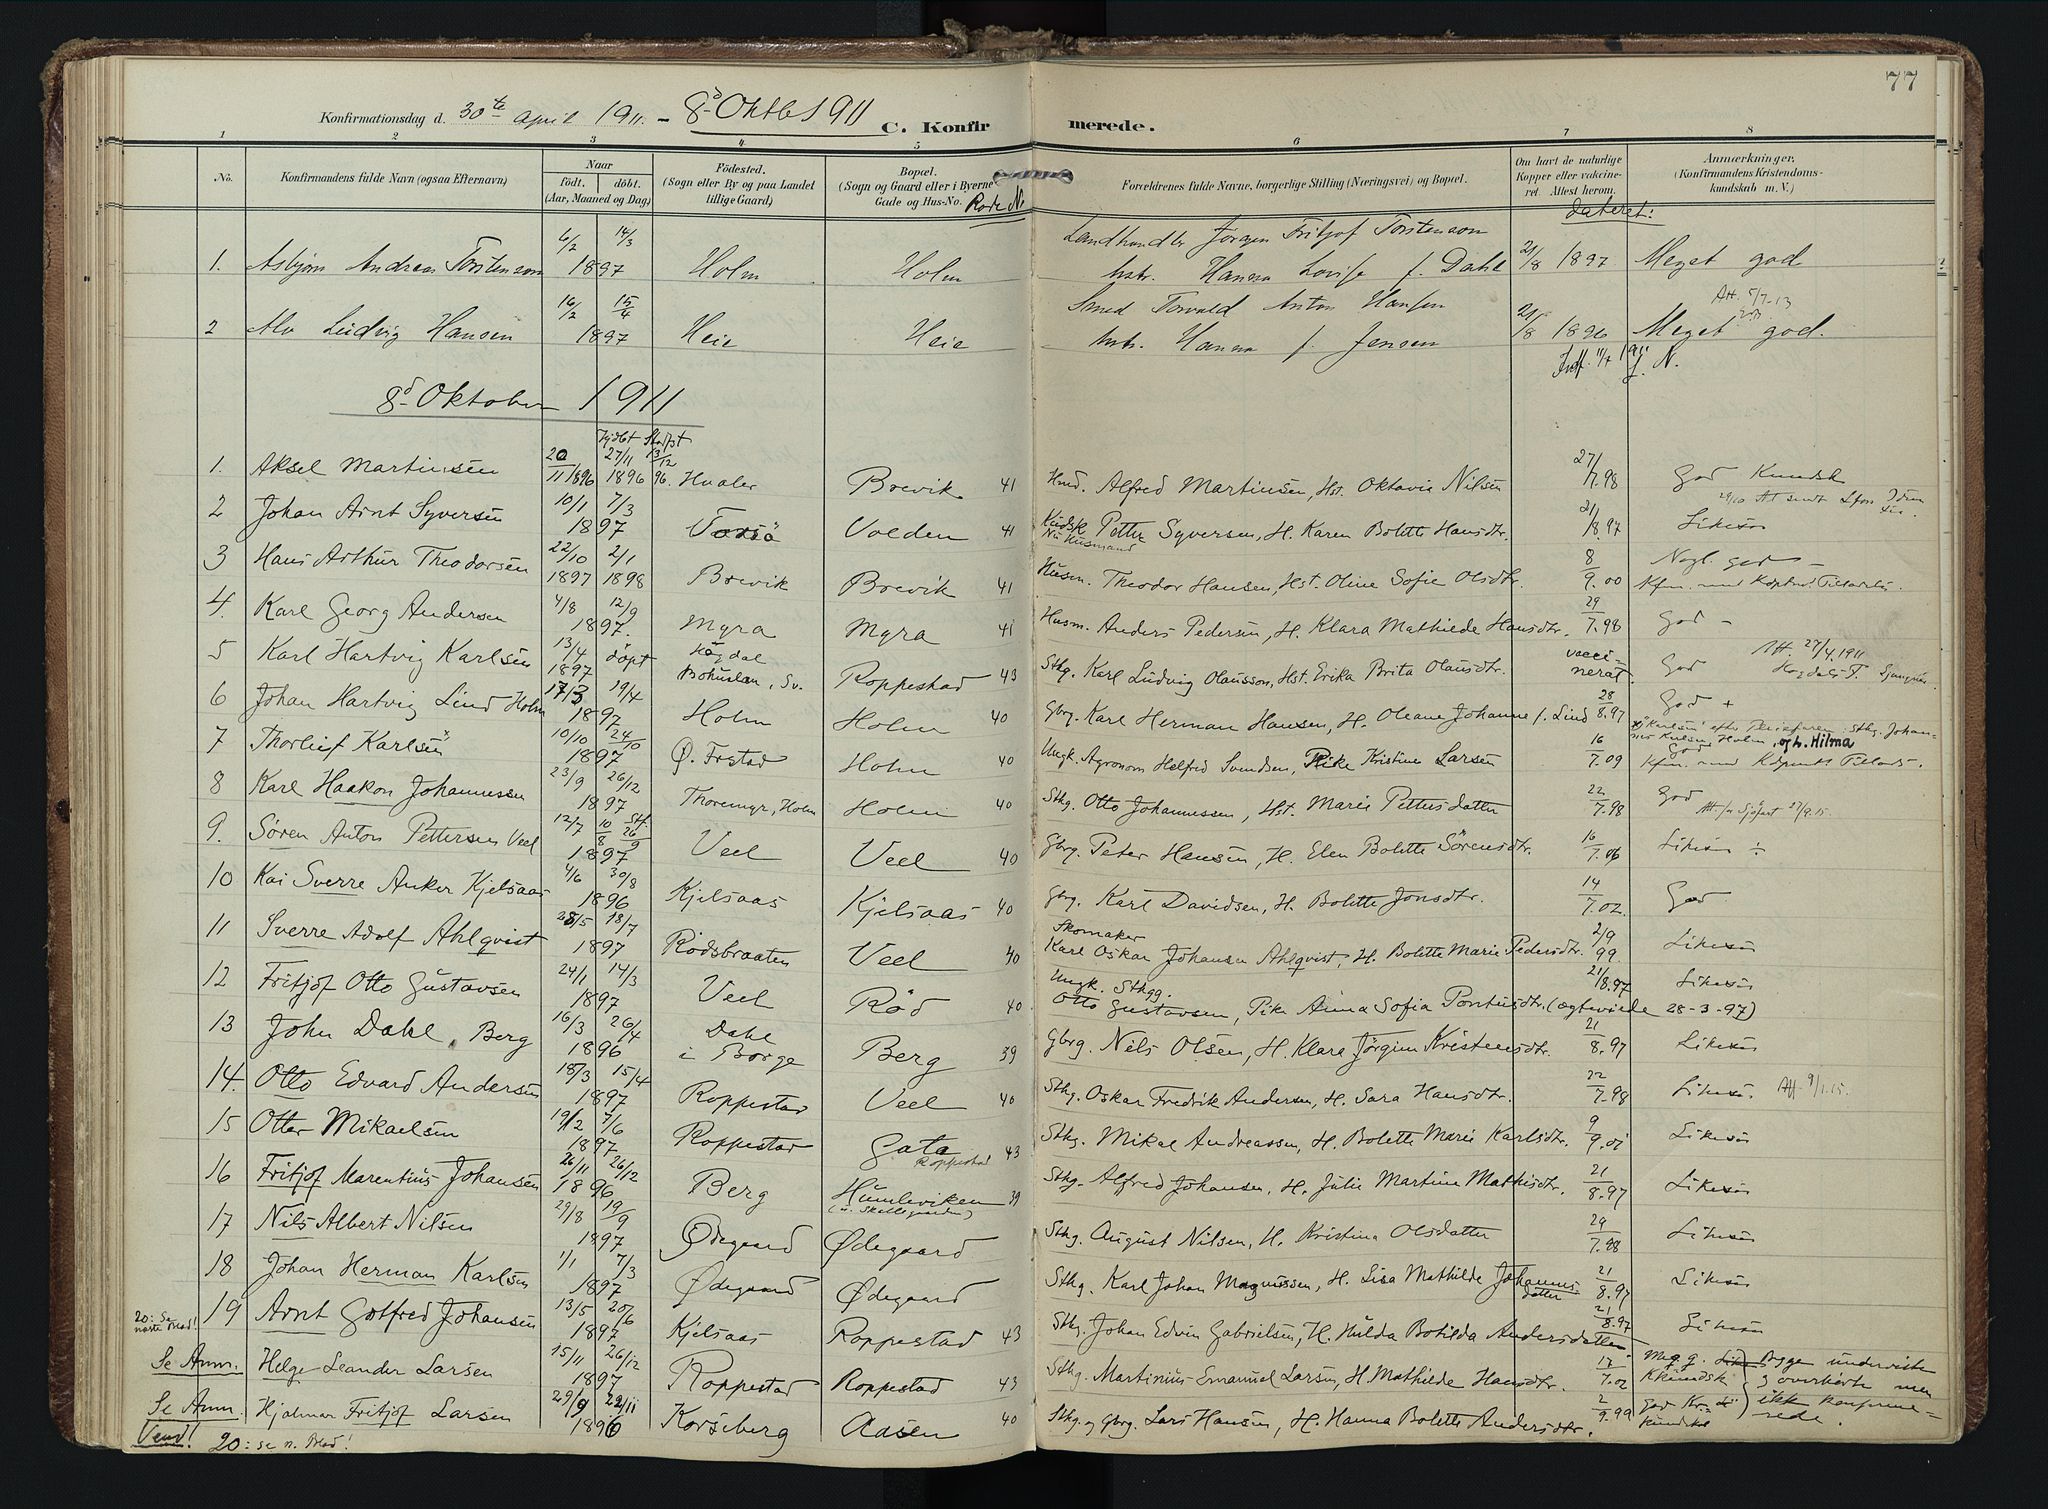 77
Konfirmationsdag d. 30te april 1911. - 8d Oktbr 1911
C. Konfirmerede.
1 2 3 4 5 6 7 8
No.
Konfirmandens fulde Navn (ogsaa Efternavn)
Naar
født. døbt.
(Aar, Maaned og Dag)
Fødested.
(Sogn eller By og paa Landet
tillige Gaard)
Bopæl.
(Sogn og Gaard eller i Byerne
Gade og Hus-No.
Rode No
Forældrenes fulde Navne, borgerlige Stilling (Næringsvei) og Bopæl.
Om havt de naturlige
Kopper eller vaccine-
ret Attest herom.
dateret:
Anmærkninger.
(Konfirmandens Kristendoms-
kundskab m. V.)
1. Asbjørn Andreas Torstenson 6/2 14/3 1897 Holm Holm Landhandler Jørgen Fritjof Torstenson hstr. Hanna Lovise f. Dahl 21/8 1897 Meget god
2 Alv Ludvig Hansen 16/2 15/4 1897 Heie Heie Smed Torvald Anton Hansen hstr. Hanna f. Jensen 21/8 1896 Meget god. Att. 5/7-13
Indf. 11/7 1911 J. N.
8d Oktober 1911
1. Aksel Martinsen 20/11 1896 Hjdbt 27/11 1896 Stadfst 13/12 96. Hvaler Brevik 41 Hmd. Alfred Martinsen, Hst. Oktavie Nilsen 27/7.98 God Kundsk
2 Johan Arnt Syversen 10/1 7/3 1897 Torsö Volden 41 Kudsk Petter Syversen, H. Karen Bolette Hansdtr. 21/8.97 Likesaa
Nu Husmand
3 Hans Arthur Theodorsen 22/10 1897 2/1 1898 Brevik Brevik 41 Husm. Theodor Hansen, Hst. Oline Sofie Olsdtr. 8/9.00 Nogl. god -
4. Karl Georg Andersen 4/8 12/9 1897. Myra Myra 41 Husm. Anders Pedersen, H. Klara Mathilde Hansdtr. 29/7.98 God -
5 Karl Hartvig Karlsen 13/4 1897 döpt Högdal Bohuslen, Sv. Roppestad 43 Sthg. Karl Ludvig Olausson, Hst. Erika Brita Olausdtr. vacci-nerat. God Att. 27/4.1911
6 Johan Hartvig Lind Holm 17/3 19/4 1897 Holm Holm 40 Gbrg. Karl Herman Hansen, H. Oleane Johanne f. Lind 28/8.97 God +
og h. Hilma
7 Thorleif Karlsen 10/10 24/10 1897 Ø. Frstad Holm 40 Ungk. Agronom Helfred Svendsen, Pike Kristine Larsen 16/7.09 God
8 Karl Haakon Johannessen 23/9 26/12 1897 Thoremyr, Holm Holm 40 Sthg. Otto Johannessen, Hst. Marie Pettersdatter 22/7.98 God
9. Søren Anton Pettersen Veel 12/7 10/8 Stf. 26/9 1897 Veel Veel 40 Gbrg. Peter Hansen, H. Elen Bolette Sörensdtr. 16/7.06 Likesaa
10 Kai Sverre Anker Kjelsaas 4/6 30/8 1896 Kjelsaas Kjelsaas 40 Gbrg. Karl Davidsen, H. Bolette Jonsdtr. 14/7.02. God
11 Sverre Adolf Ahlqvist 28/5 18/7 1897 Rödsbraaten Veel 40 Skomaker Karl Oskar Johansen Ahlqvist, H. Bolette Marie Pedersdtr. 2/9 99 Likesaa
12 Fritjof Otto Gustavsen 24/1 14/3 1897 Veel Röd 40 Ungk. Sthgg. Otto Gustavsen, Pike Anna Sofia Pontusdtr. (ægteviede 28-3-97) 21/8.97 Likesaa
13 John Dahl, Berg 16/3 26/4 1896 Dahl i Borge Berg 39 Gbrg. Nils Olsen, H. Klara Jörgine Kristensdtr. 21/8.97 Likesaa
14. Otto Edvard Andersen 18/3 15/4 1897 Roppestad Veel 40 Sthg. Oskar Fredrik Andersen, H. Sara Hansdtr. 22/7.98 Likesaa Att 9/1.15.
15 Otter Mikaelsen 19/2 7/6 1897 Roppestad Gata Roppestad 43 Sthg. Mikal Andreassen, H. Bolette Marie Karlsdtr. 9/9.01 Likesaa
16 Fritjof Marentius Johansen 26/11 26/12 1896 Berg Humleviken 39 Sthg. Alfred Johansen, H. Julie Martine Mathisdtr. 21/8.97 Likesaa
17 Nils Albert Nilsen 29/8 19/9 1897 Ødegaard Ødegaard Sthg. August Nilsen, H. Kristina Olsdatter 29/7.98 Likesaa
18 Johan Herman Karlsen 1/1 7/3 1897 Ødegaard Ødegaard Sthg. Karl Johan Magnussen, H. Lisa Mathilde Johannesdatter 21/8.97 Likesaa
20: Se næste Blad!
19 Arnt Gotfred Johansen 13/5 20/6 1897 Kjelsaas Roppestad 43 Sthg. Johan Edvin Gabrielsen, H. Hulda Botilda Andersdatter 21/8.97 Likesaa
Se Anm. Helge Leander Larsen 15/11 26/12 1897 Roppestad Roppestad 43 Sthg. Martinius Emanuel Larsen, H. Mathilde Hansdtr. 17/7.02 Meg. g. Kkundsk
Se Anm. Hjalmar Fritjof Larsen 29/9 22/11 1896 Korseberg Aasen 40 Sthg. og Gbrg. Lars Hansen, H. Hanna Bolette Andersdtr. 2/9.99 God Kr.d.kundsk
Begge underviste
og overhørte men
ikke konfirme-
rede.
Vend! 20: se n. Blad!